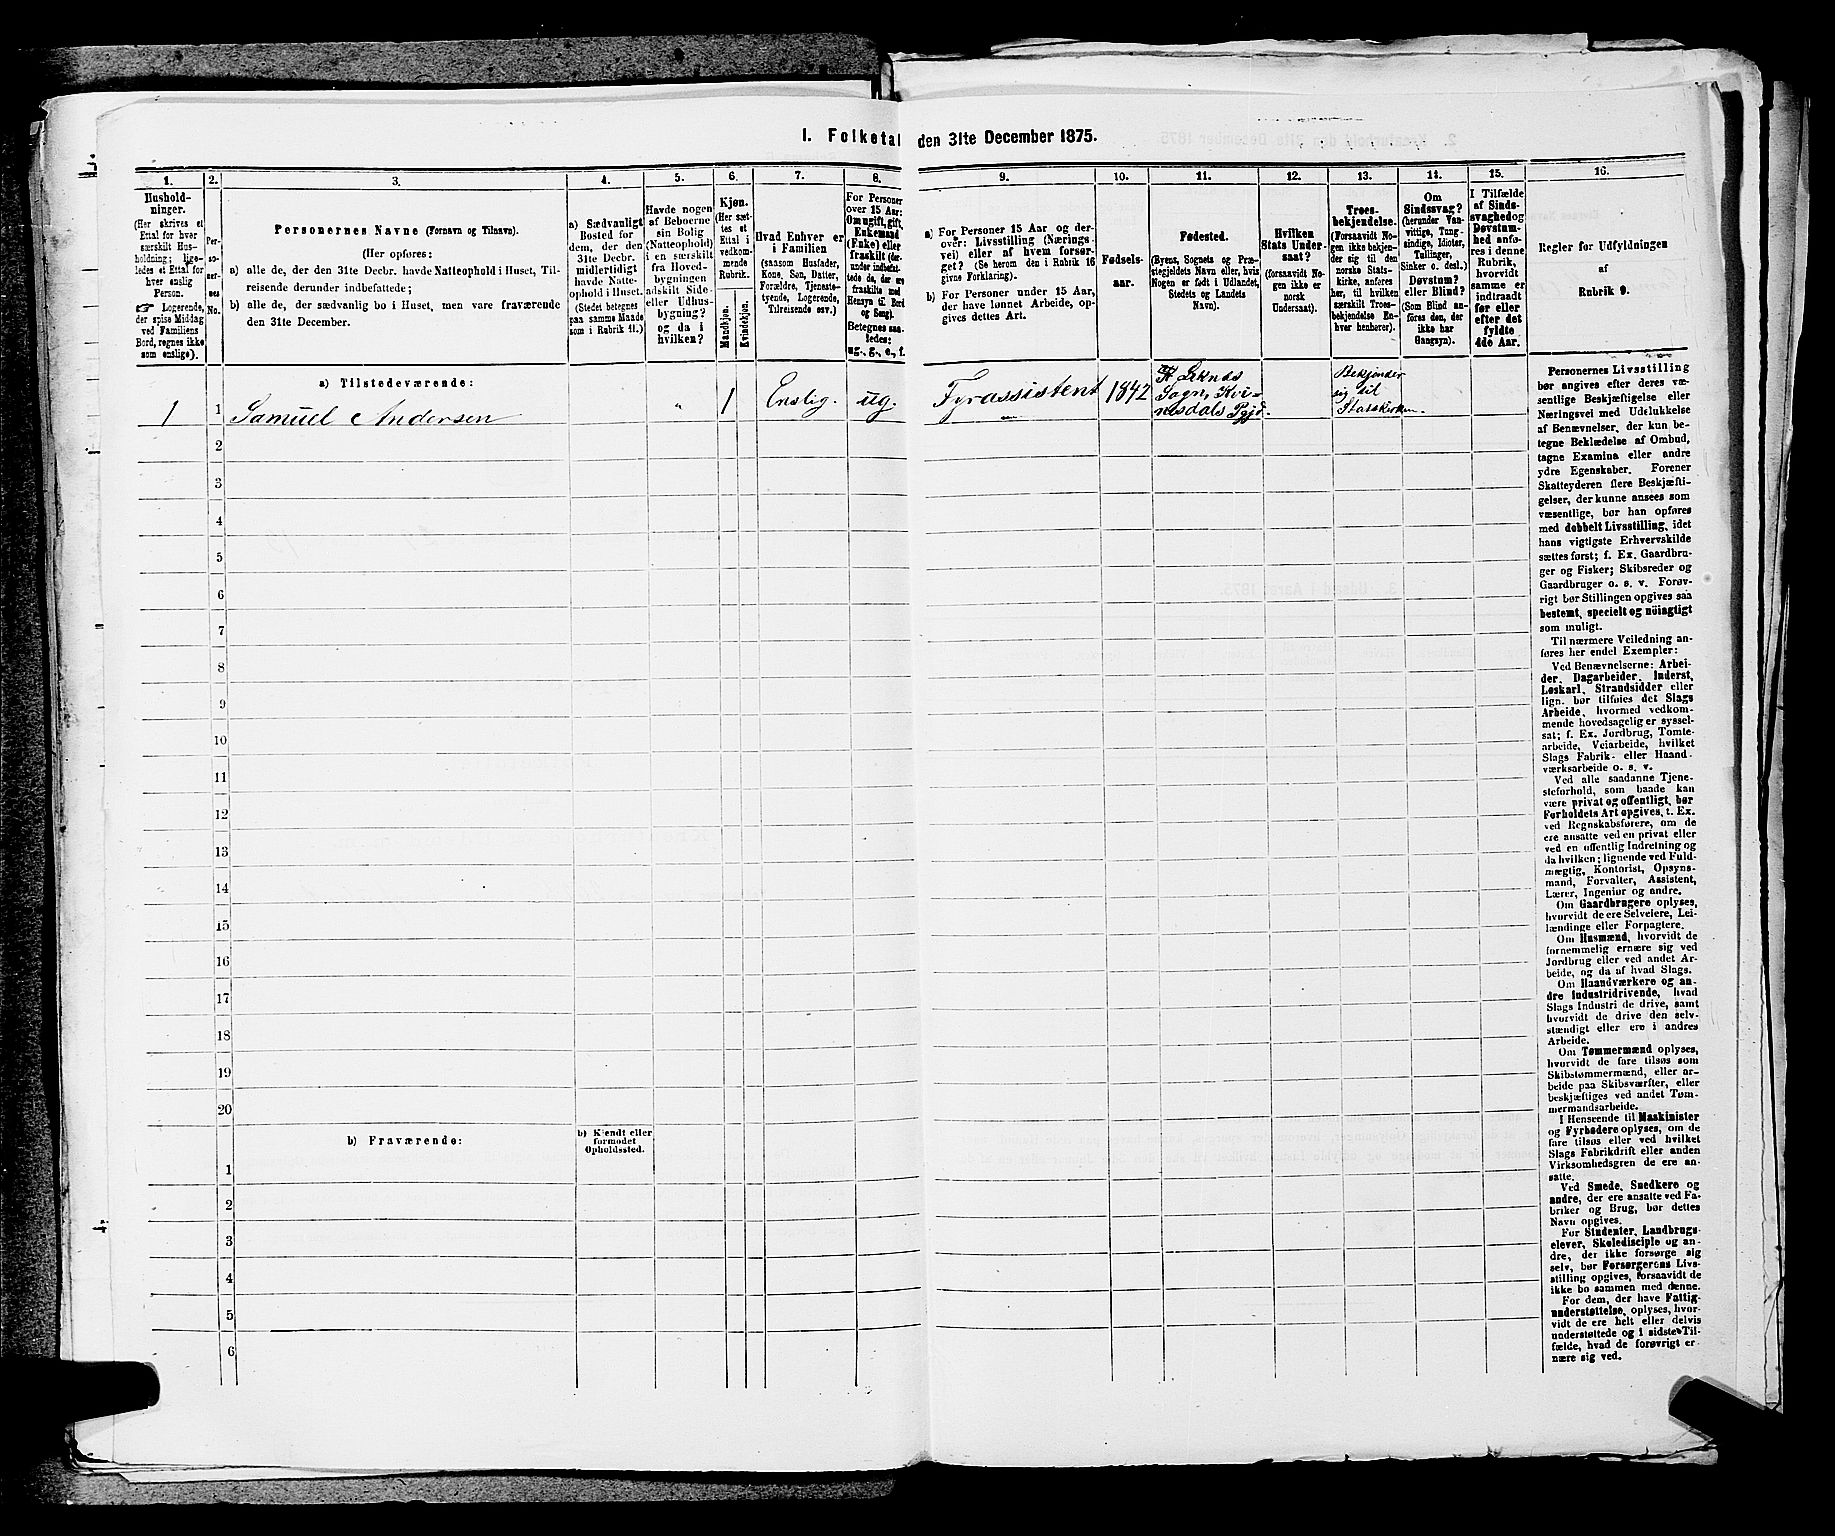 1. Folketal den 31te December 1875.
1.
Hushold-
ninger.
(Her skrives et
Ettal for hver
særskilt Hus-
holdning; lige-
ledes et Ettal for
hver enslig
Person.
Logerende,
der spise Middag
ved Familiens
Bord, regnes ikke
som enslige).
2.
Per-
soner-
nes
No.
3.
Personernes Navne (Fornavn og Tilnavn).
(Her opføres:
a) alle de, der den 31te Decbr. havde Natteophold i Huset, Til-
reisende derunder indbefattede;
b) alle de, der sædvanlig bo i Huset, men vare fraværende
den 31te December.
4.
a) Sædvanligt
Bosted for
dem, der den
31te Decbr.
midlertidigt
havde Natte-
ophold i Huset.
(Stedet betegnes
paa samme Maade
som i Rubrik 11.)
5.
Havde nogen
af Beboerne
sin Bolig
(Natteophold)
i en særskilt
fra Hoved-
bygningen
adskilt Side-
eller Udhus-
bygning?
og da i
hvilken?
6.
Kjøn.
(Her sæt-
tes et
Ettal i
vedkom-
mende
Rubrik.
Mandkjøn.
Kvindekjøn.
7.
Hvad Enhver er
i Familien
(saasom Husfader,
Kone, Søn, Datter,
Forældre, Tjeneste-
tyende, Logerende,
Tilreisende osv.)
8.
For Personer
over 15 Aar:
Om ugift, gift,
Enkemand
(Enke) eller
fraskilt (der-
under indbefat-
tede de, der ere
fraskilte med
Hensyn til Bord
og Seng).
Betegnes saa-
ledes:
ug., g., e., f.
9.
a) For Personer 15 Aar og der-
over: Livsstilling (Nærings-
vei) eller af hvem forsør-
get? (Se herom den i Rubrik 16
givne Forklaring).
b) For Personer under 15 Aar,
der have lønnet Arbeide, op-
gives dettes Art.
10.
Fødsels-
aar.
11.
Fødested.
(Byens, Sognets og Præ-
stegjeldets Navn, eller, hvis
Nogen er født i Udlandet,
Stedets og Landets
Navn).
12.
Hvilken
Stats Under-
saat?
(forsaavidt No-
gen ikke er
norsk
Undersaat).
13.
Troes-
bekjendelse.
(Forsaavidt No-
gen ikke bekjen-
der sig til den
norske Stats-
kirke, anføres
her, til hvilken
særskilt Troes-
bekjendelse En-
hver henhører).
14.
Om
Sindssvag?
(herunder Van-
vittige, Tung-
sindige, Idioter,
Tullinger,
Sinker o. desl.)
Døvstum?
eller Blind?
(Som Blind an-
føres den, der
ikke har
Gangsyn).
15.
I Tilfælde
af Sinds-
svaghed og
Døvstum-
hed anfø-
res i denne
Rubrik,
hvorvidt
samme er
indtraadt
før eller
efter det
fyldte
4de Aar.
16.
Regler for Udfyldningen
af
Rubrik 9.
a) Tilstedeværende:
1 1 Samuel Andersen „ 1 Enslig. ug. Fyrassistent 1842
Leknes
Sogn, Kvi-
nesdals Pgjd.
Bekjender
sig til
Statskirken.
2
3
4
5
6
7
8
9
10
11
12
13
14
15
16
17
18
19
20
b) Fraværende:
b) Kjendt eller
formodet
Opholdssted.
1
2
3
4
5
6
Personernes Livsstilling
bør angives efter deres væ-
sentlige Beskjæftigelse eller
Næringsvei med Udelukkelse
af Benævnelser, der kun be-
tegne Beklædelse af Ombud,
tagne Examina eller andre
ydre Egenskaber. Forener
Skatteyderen flere Beskjæfti-
gelser, der kunne ansees som
væsentlige, bør han opføres
med dobbelt Livsstilling, idet
hans vigtigste Erhvervskilde
sættes først; f. Ex. Gaardbru-
ger og Fisker; Skibsreder og
Gaardbruger o. s. v. Forøv-
rigt bør Stillingen opgives saa
bestemt, specielt og nöiagtigt
som muligt.
Til nærmere Veiledning an-
føres her endel Exempler:
Ved Benævnelserne: Arbei-
der, Dagarbeider, Inderst,
Løskarl, Strandsidder eller
lign. bør tilføies det Slags
Arbeide, hvormed vedkom-
mende hovedsagelig er syssel-
sat; f. Ex. Jordbrug, Tomte-
arbeide, Veiarbeide, hvilket
Slags Fabrik- eller Haand-
værksarbeide o. s. v.
Ved alle saadanne Tjene-
steforhold, som baade kan
være privat og offentligt, bør
Forholdets Art opgives, t. Ex.
ved Regnskabsførere, om de
ere ansatte ved en privat eller
ved en offentlig Indretning og
da hvilken; lignende ved Fuld-
mægtig, Kontorist, Opsyns-
mand, Forvalter, Assistent,
Lærer, Ingeniør og andre.
Om Gaardbrugere oplyses,
hvorvidt de ere Selveiere, Lei-
lændinge eller Forpagtere.
Om Husmænd, hvorvidt de
fornemmelig ernære sig ved
Jordbrug eller ved andet Ar-
beide, og da af hvad Slags.
Om Haandværkere og an-
dre Industridrivende, hvad
Slags Industri de drive, samt
hvorvidt de drive den selv-
stændigt eller ere i andres
Arbeide.
Om Tømmermænd oplyses,
hvorvidt de fare tilsøs som
Skibstømmermænd, eller ar-
beide paa Skibsværfter, eller
beskjæftiges ved andet Tøm-
mermandsarbeide.
I Henseende til Maskinister
og Fyrbødere oplyses, om de
fare tilsøs eller ved hvilket
Slags Fabrikdrift eller anden
Virksomhedsgren de ere an-
satte.
Ved Smede, Snedkere og
andre, der ere ansatte ved Fa-
briker og Brug, bør dettes
Navn opgives.
For Studenter, Landbrugs-
elever, Skoledisciple og an-
dre, der ikke forsørge sig
selv, bør Forsørgerens Livs-
stilling opgives, forsaavidt de
ikke bo sammen med denne.
For dem, der have Fattig-
understøttelse, oplyses, hvor-
vidt de ere helt eller delvis
understøttede og i sidste Til-
fælde, hvad de forøvrigt er-
nære sig ved.